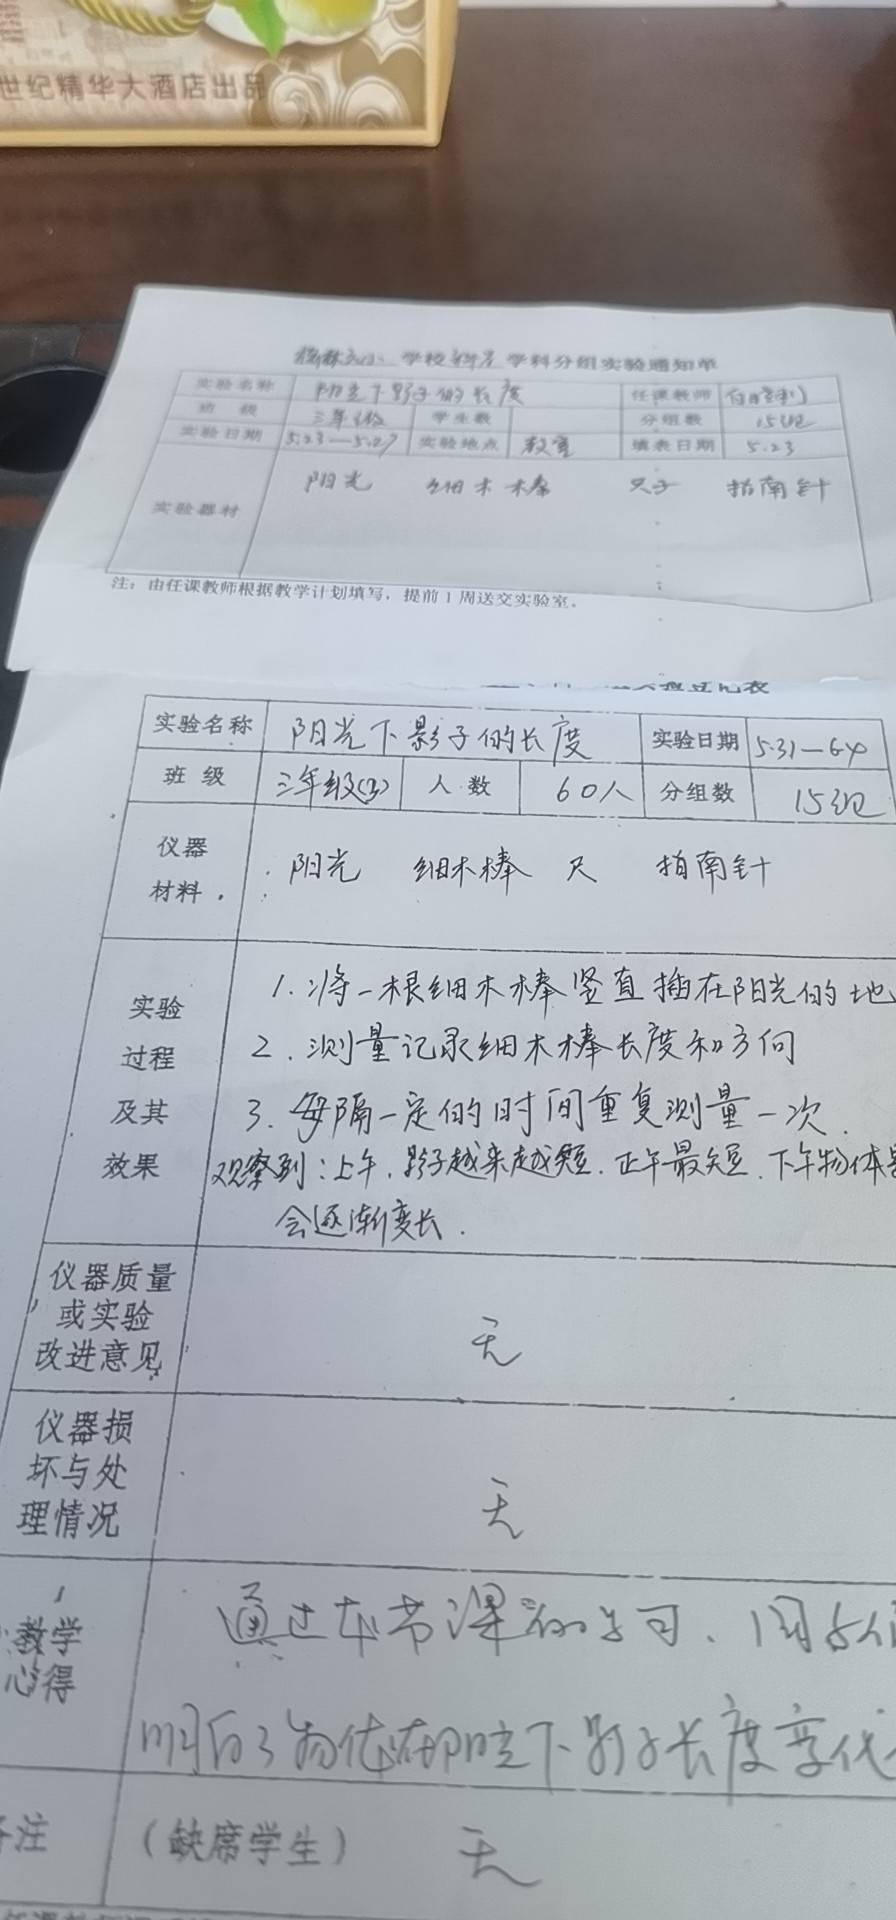 世纪精华大酒店出品
学校 学科分组实验通知单
实验名称 阳光下影子的长度 任课教师
班 级 三年级 学生数 分组数 15组
实验日期 5.23—5.27 实验地点 教室 填表日期 5.23
实验器材 阳光 细木棒 尺子 指南针
注：由任课教师根据教学计划填写，提前1周送交实验室。
实验名称 阳光下影子的长度 实验日期 5.31—6.4
班 级 三年级(3) 人 数 60人 分组数 15组
仪器
材料
阳光 细木棒 尺 指南针
实验
过程
及其
效果
1.将一根细木棒竖直插在阳光的地
2.测量记录细木棒长度和方向
3.每隔一定的时间重复测量一次.
观察到:上午,影子越来越短.正午最短.下午物体
会逐渐变长.
仪器质量
或实验
改进意见
无
仪器损
坏与处
理情况
无
教学
心得
通过本节课的学习、同学们
明白了物体在阳光下影子长度变化
注
(缺席学生) 无